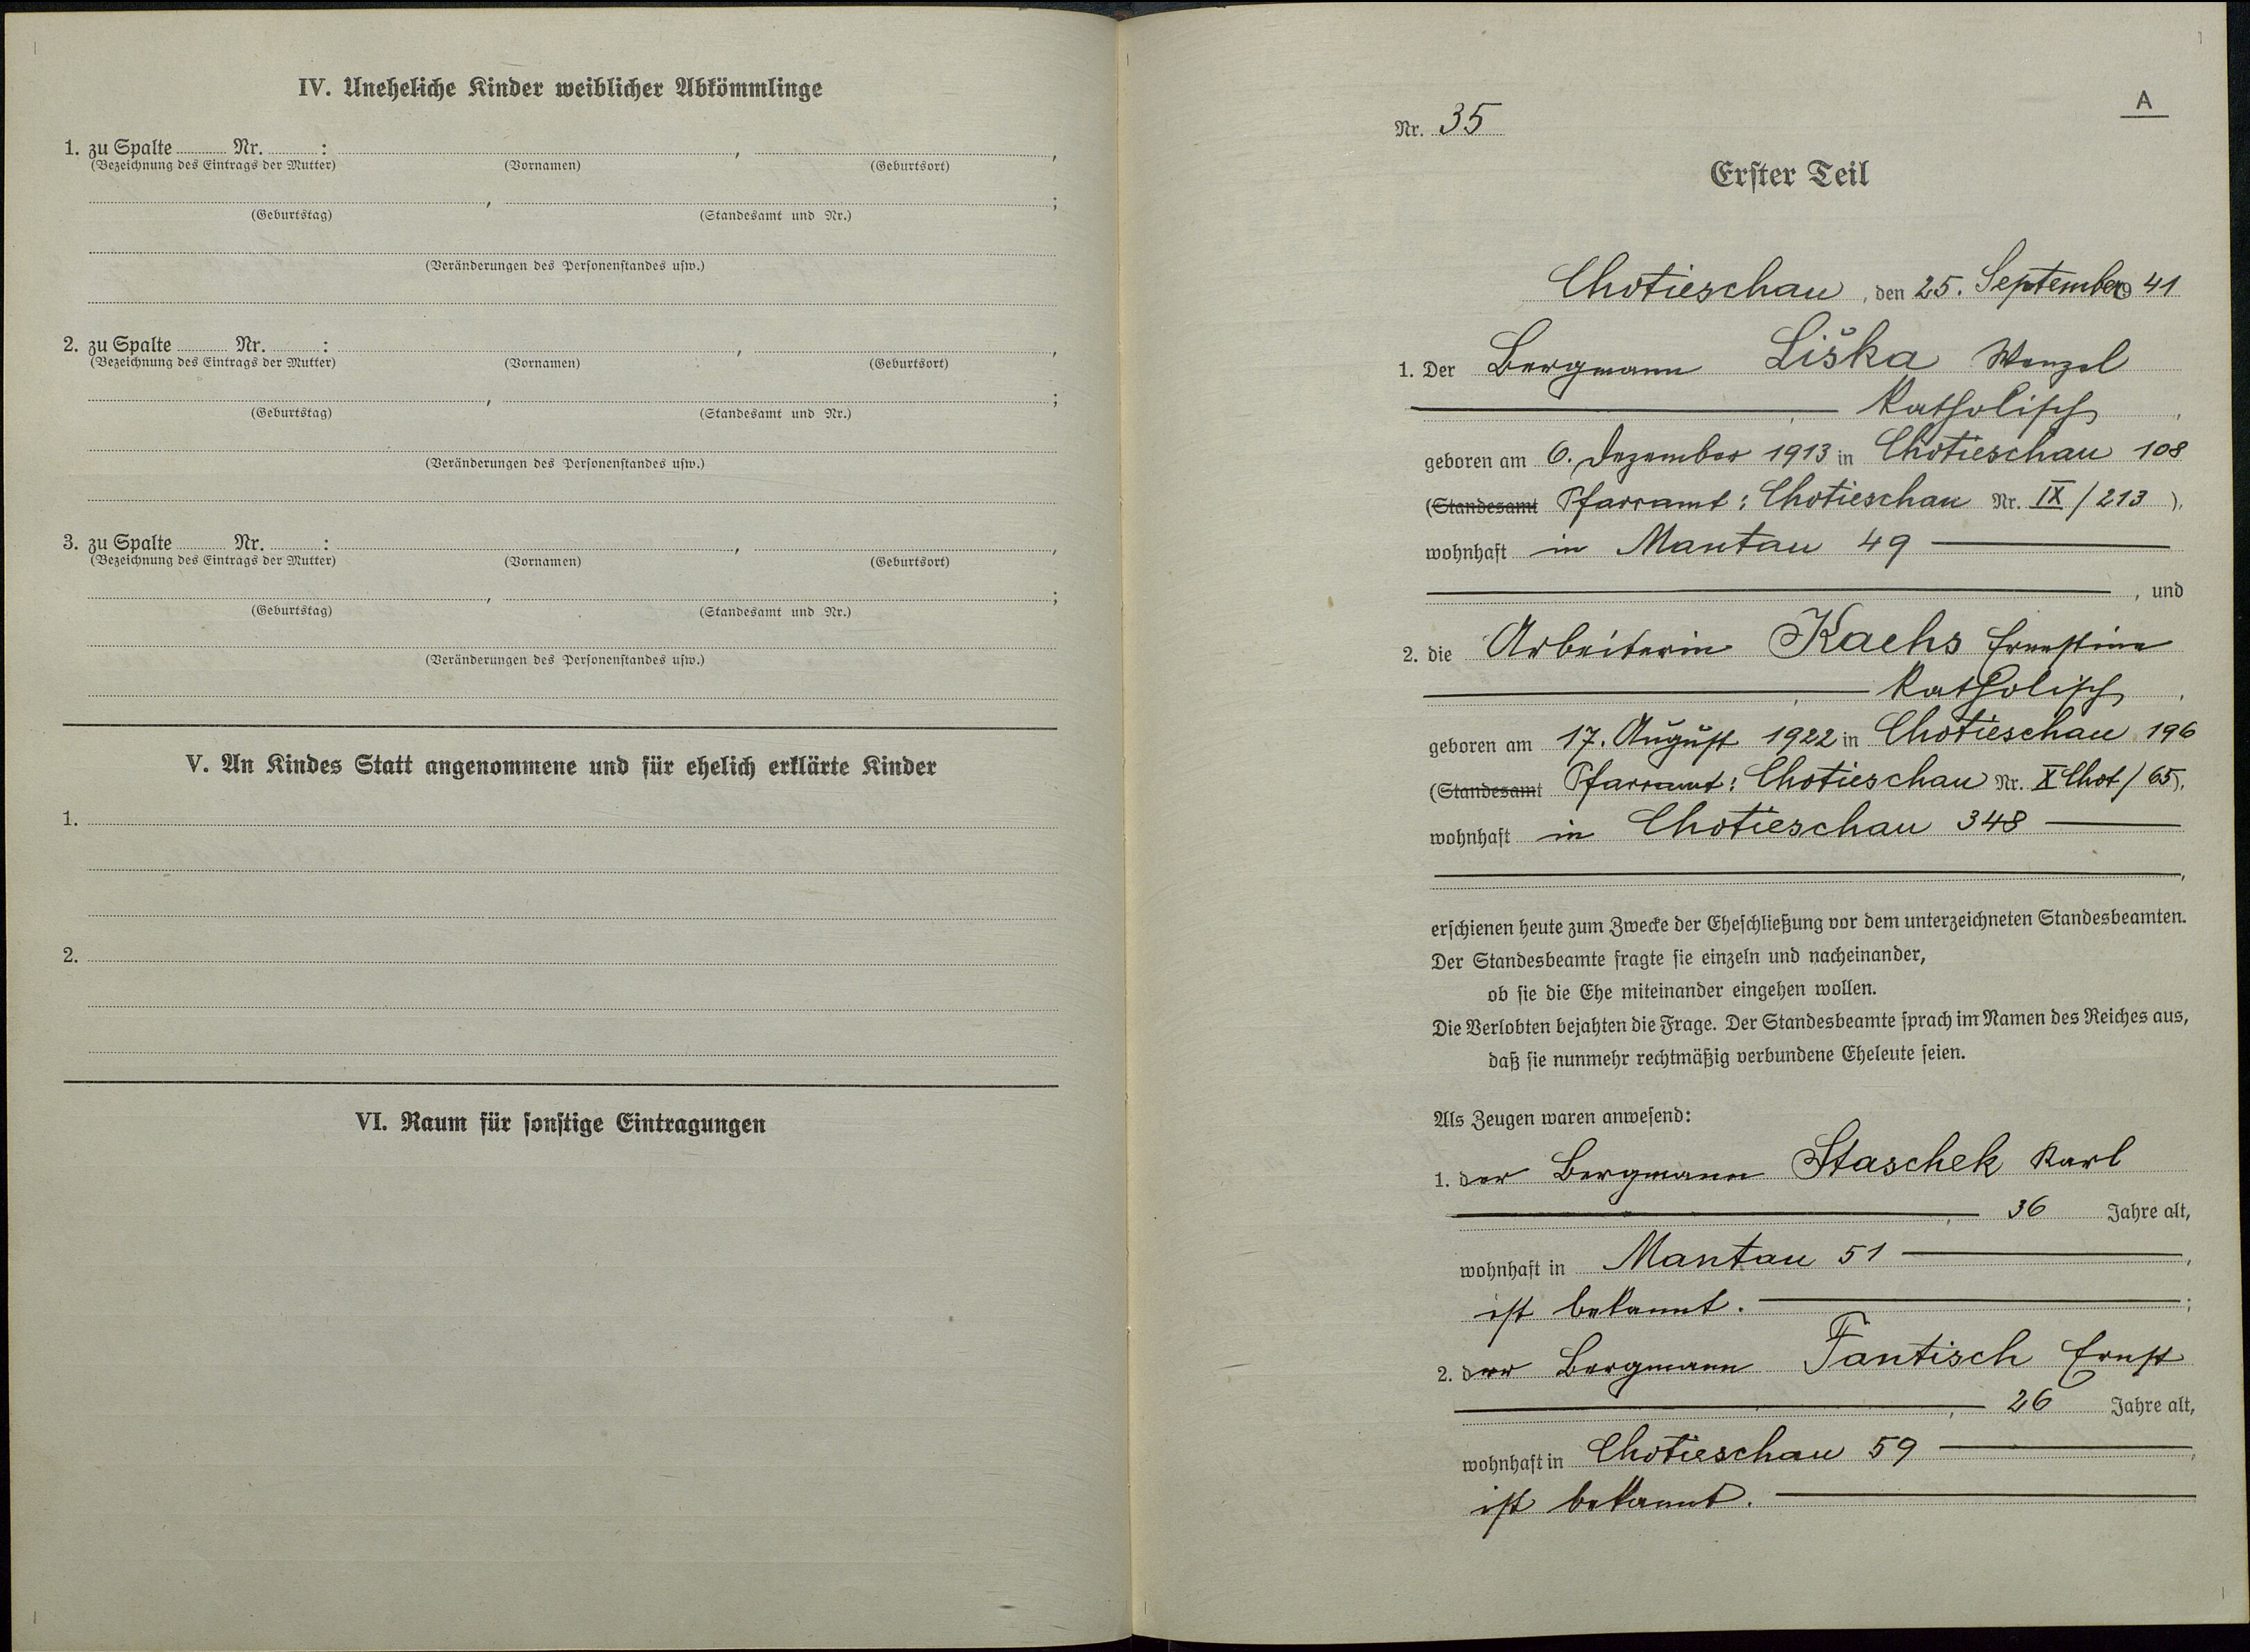 IV. Uneheliche Kinder weiblicher Abkömmlinge
1. zu Spalte Nr. : , ,
(Bezeichnung des Eintrags der Mutter) (Vornamen) (Geburtsort)
, ;
(Geburtstag) (Standesamt und Nr.)
(Veränderungen des Personenstandes usw.)
2. zu Spalte Nr. : , ,
(Bezeichnung des Eintrags der Mutter) (Vornamen) (Geburtsort)
, ;
(Geburtstag) (Standesamt und Nr.)
(Veränderungen des Personenstandes usw.)
3. zu Spalte Nr. : , ,
(Bezeichnung des Eintrags der Mutter) (Vornamen) (Geburtsort)
, ;
(Geburtstag) (Standesamt und Nr.)
(Veränderungen des Personenstandes usw.)
V. An Kindes Statt angenommene und für ehelich erklärte Kinder
1.
2.
VI. Raum für sonstige Eintragungen
A
Nr. 35
Erster Teil
Chotieschau, den 25. September 1941
1. Der Bergmann Liška Wenzel
katholisch,
geboren am 6. Dezember 1913 in Chotieschau 108
(Standesamt Pfarramt: Chotieschau Nr. IX/213),
wohnhaft in Mantau 49
, und
2. die Arbeiterin Kaehs Ernestine
katholisch,
geboren am 17. August 1922 in Chotieschau 196
(Standesamt Pfarramt: Chotieschau Nr. X Chot/65),
wohnhaft in Chotieschau 348
,
erschienen heute zum Zwecke der Eheschließung vor dem unterzeichneten Standesbeamten.
Der Standesbeamte fragte sie einzeln und nacheinander,
ob sie die Ehe miteinander eingehen wollen.
Die Verlobten bejahten die Frage. Der Standesbeamte sprach im Namen des Reiches aus,
daß sie nunmehr rechtmäßig verbundene Eheleute seien.
Als Zeugen waren anwesend:
1. der Bergmann Staschek Karl
, 36 Jahre alt,
wohnhaft in Mantau 51 ,
ist bekannt. ;
2. der Bergmann Fantisch Ernst
, 26 Jahre alt,
wohnhaft in Chotieschau 59 ,
ist bekannt.